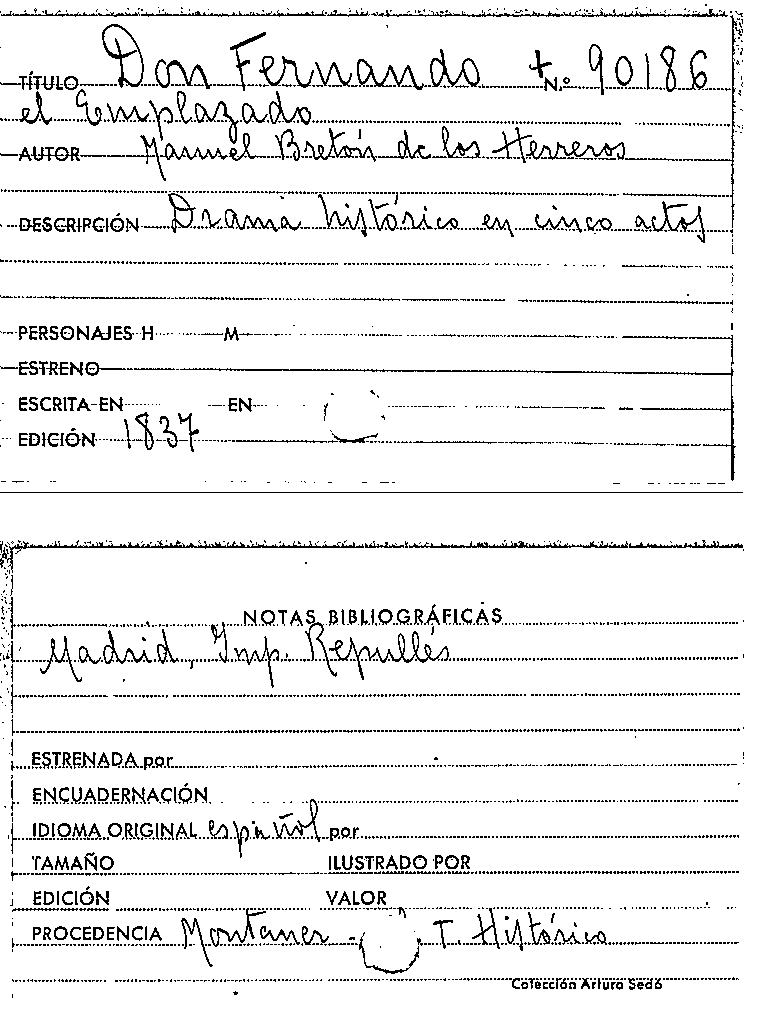 TÍTULO Don Fernando + N.º 90186
el Emplazado
AUTOR Manuel Bretón de los Herreros
DESCRIPCIÓN Drama histórico en cinco actos
PERSONAJES H M
ESTRENO
ESCRITA EN EN
EDICIÓN 1837
NOTAS BIBLIOGRÁFICAS
Madrid, Imp. Repullés
ESTRENADA por
ENCUADERNACIÓN
IDIOMA ORIGINAL español por
TAMAÑO ILUSTRADO POR
EDICIÓN VALOR
PROCEDENCIA Montaner - T. Histórico
Colección Arturo Sedó